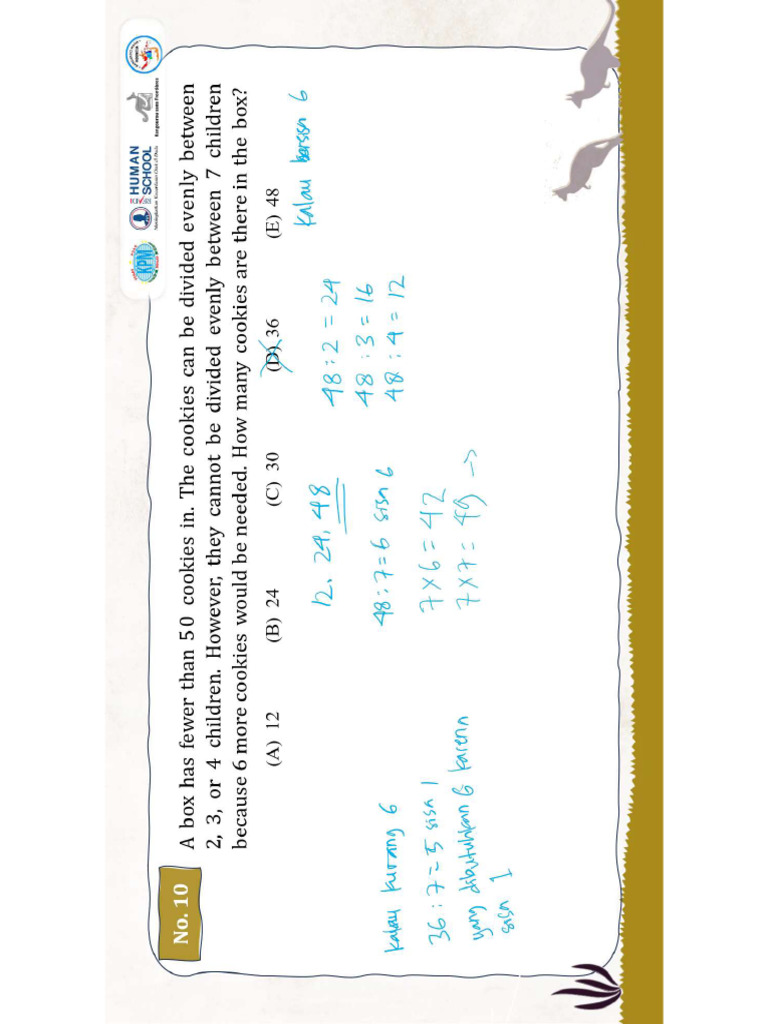 KPM
HUMAN
SCHOOL
No. 10
A box has fewer than 50 cookies in. The cookies can be divided evenly between
2, 3, or 4 children. However, they cannot be divided evenly between 7 children
because 6 more cookies would be needed. How many cookies are there in the box?
(A) 12 (B) 24 (C) 30 (D) 36 (E) 48
12, 24, 48
48 : 2 = 24
48 : 3 = 16
48 : 4 = 12
kalau bersisa 6
48 : 7 = 6 sisa 6
7 x 6 = 42
7 x 7 = 49 ->
kalau kurang 6
36 : 7 = 5 sisa 1
yang dibutuhkan 6 karena
sisa 1